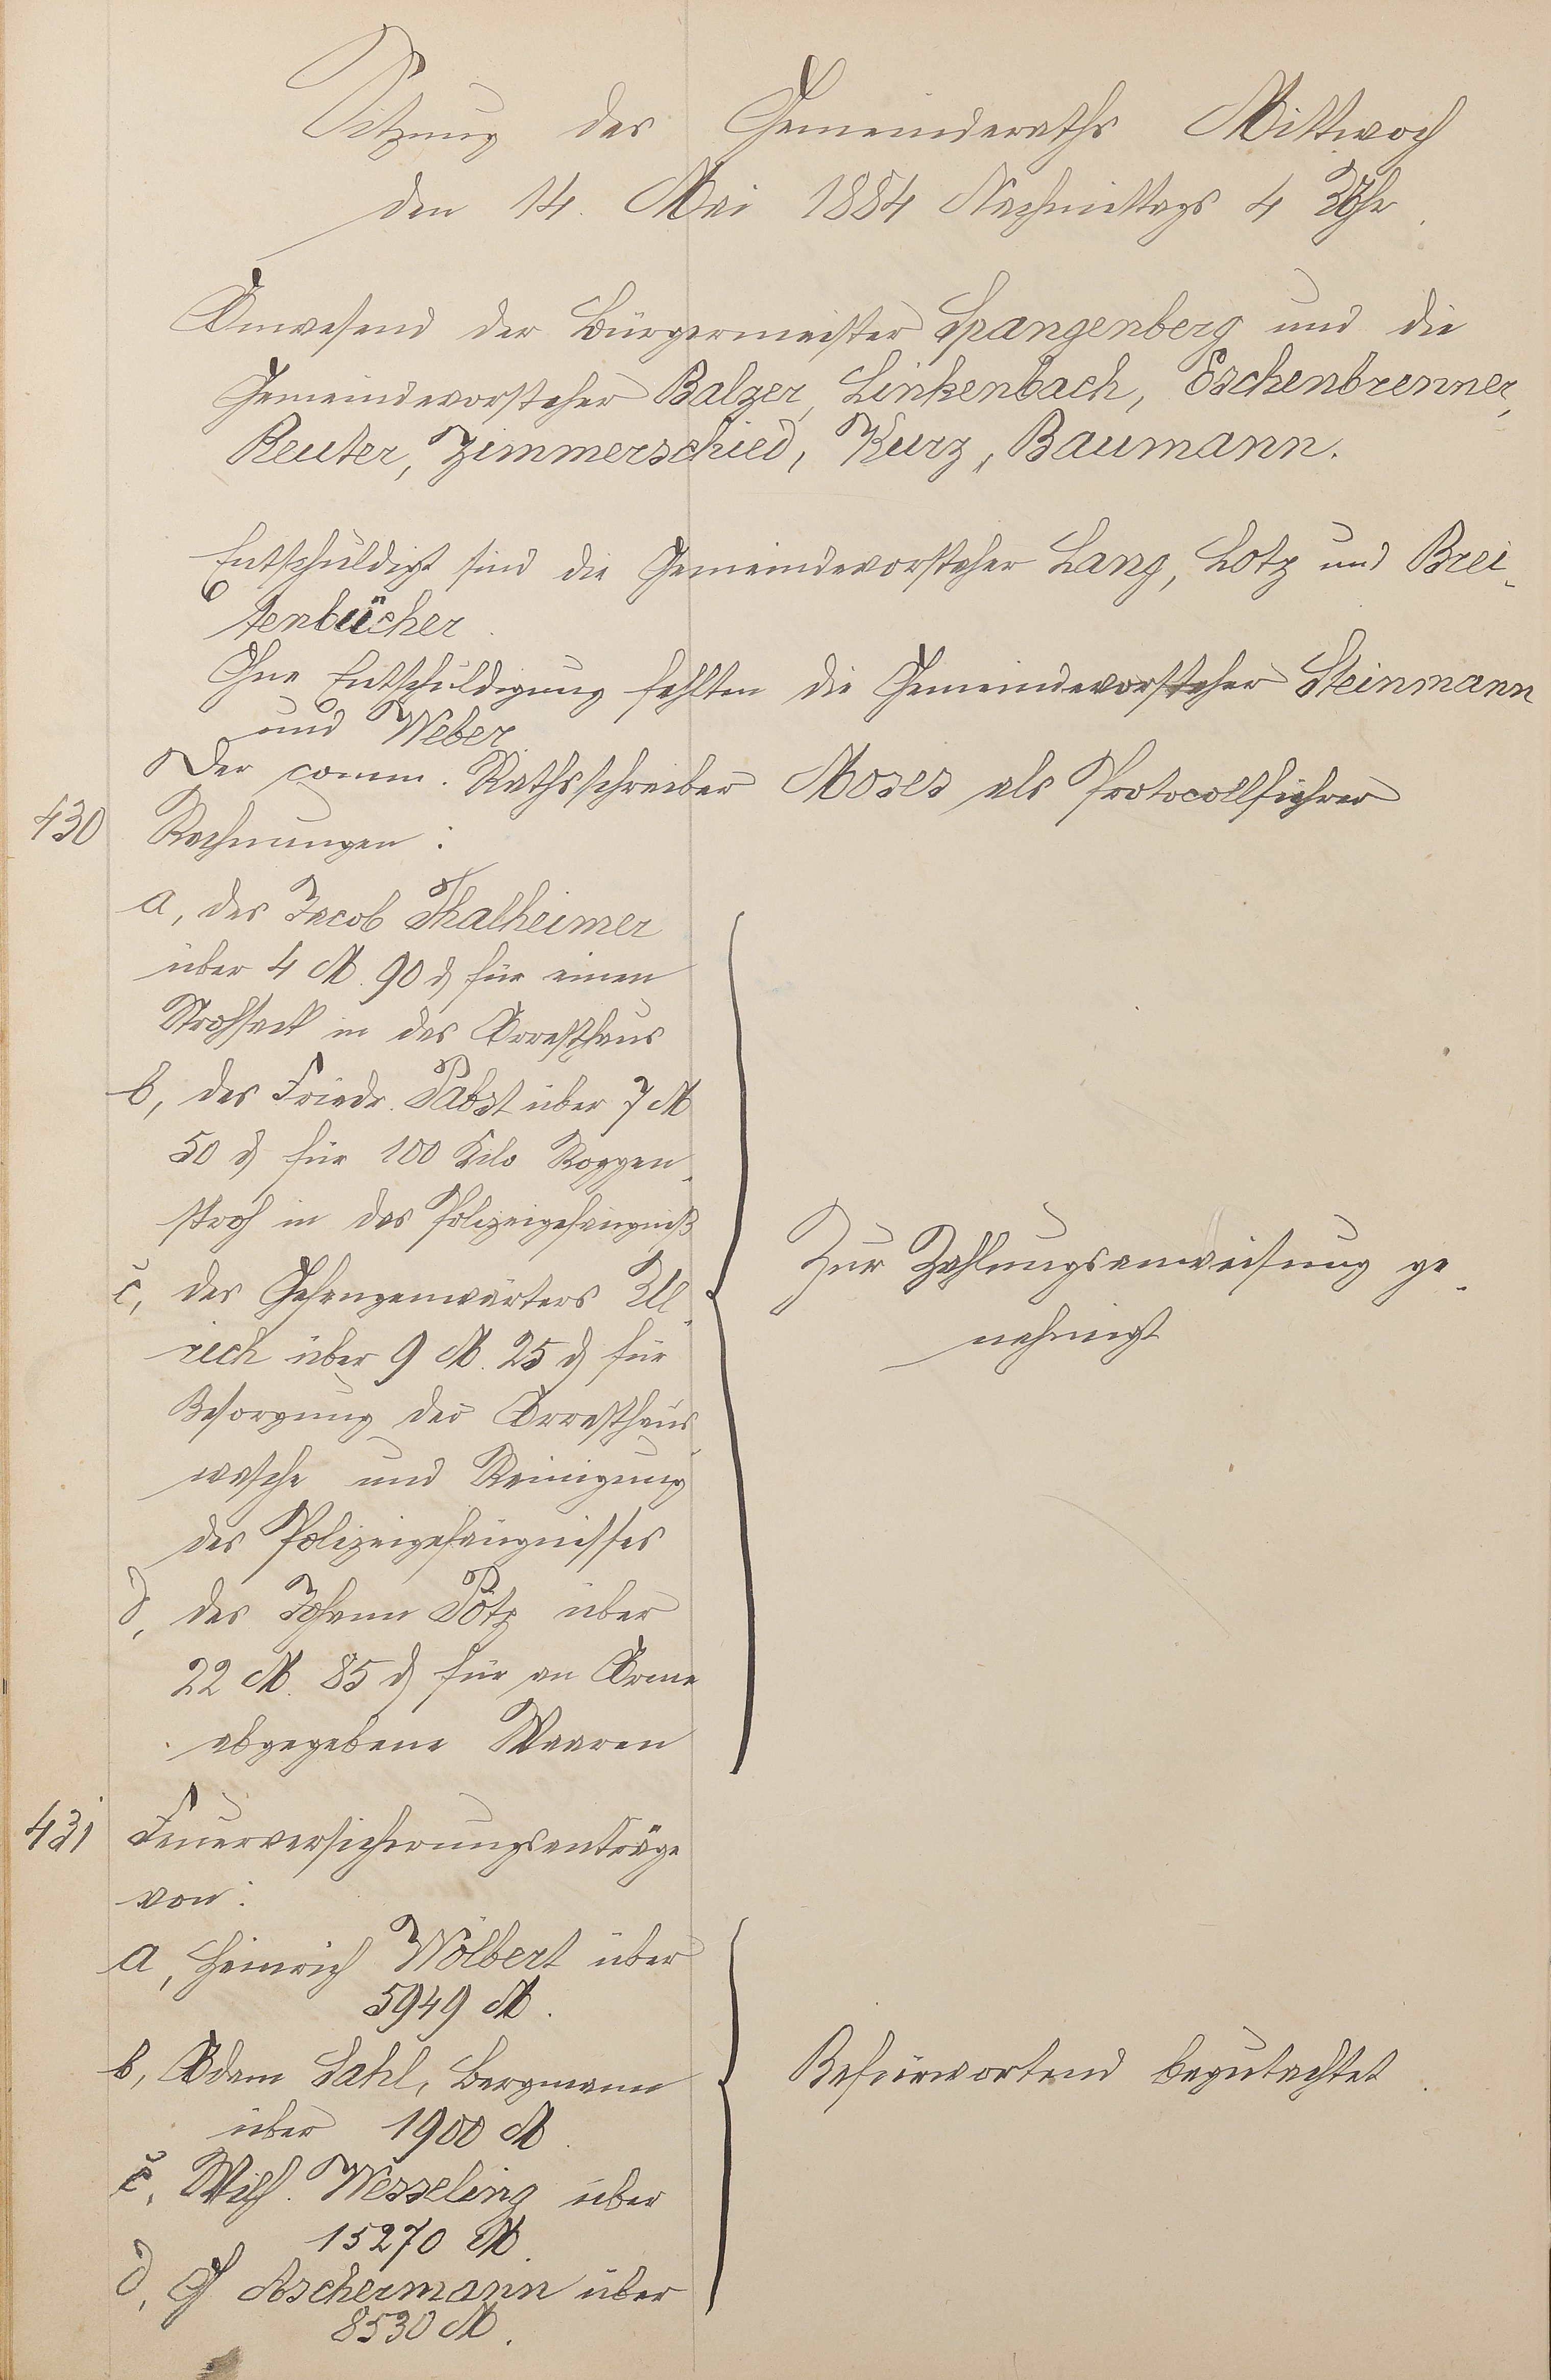 Sitzung des Gemeinderaths Mittwoch
den 14. Mai 1884 Nachmittags 4 Uhr.
Anwesend der Bürgermeister Spangenberg und die
Gemeindevorsteher Balzer, Linkenbach, Eschenbrenner,
Reuter, Zimmerschied, Kurz, Baumann.
Entschuldigt sind die Gemeindevorsteher Lang, Lotz und Brei-
tenbücher.
Ohne Entschuldigung fehlten die Gemeindevorsteher Steinmann
und Weber.
Der comm. Rathsschreiber Moses als Protocollführer
430 Rechnungen:
a, des Jacob Thalheimer
über 4 M. 90 ₰ für einen
Strohsack in das Arresthaus
b, des Friedr. Pabst über 7 M
50 ₰ für 100 Kilo Roggen-
stroh in das Polizeigefängniß
c, des Gefangenwärters Ull-
rich über 9 M. 25 ₰ für
Besorgung der Arresthaus-
wäsche und Reinigung
des Polizeigefängnisses
d, des Johann Pötz über
22 M. 85 ₰ für an Arme
abgegebene Waaren
Zur Zahlungsanweisung ge-
nehmigt
431 Feuerversicherungsanträge
von:
a, Heinrich Wölbert über
5949 M.
b, Adam Sahl, Bergmann
über 1900 M.
c, Wilh. Wesseling über
15270 M.
d, G Aschermann über
8530 M.
Befürwortend begutachtet.